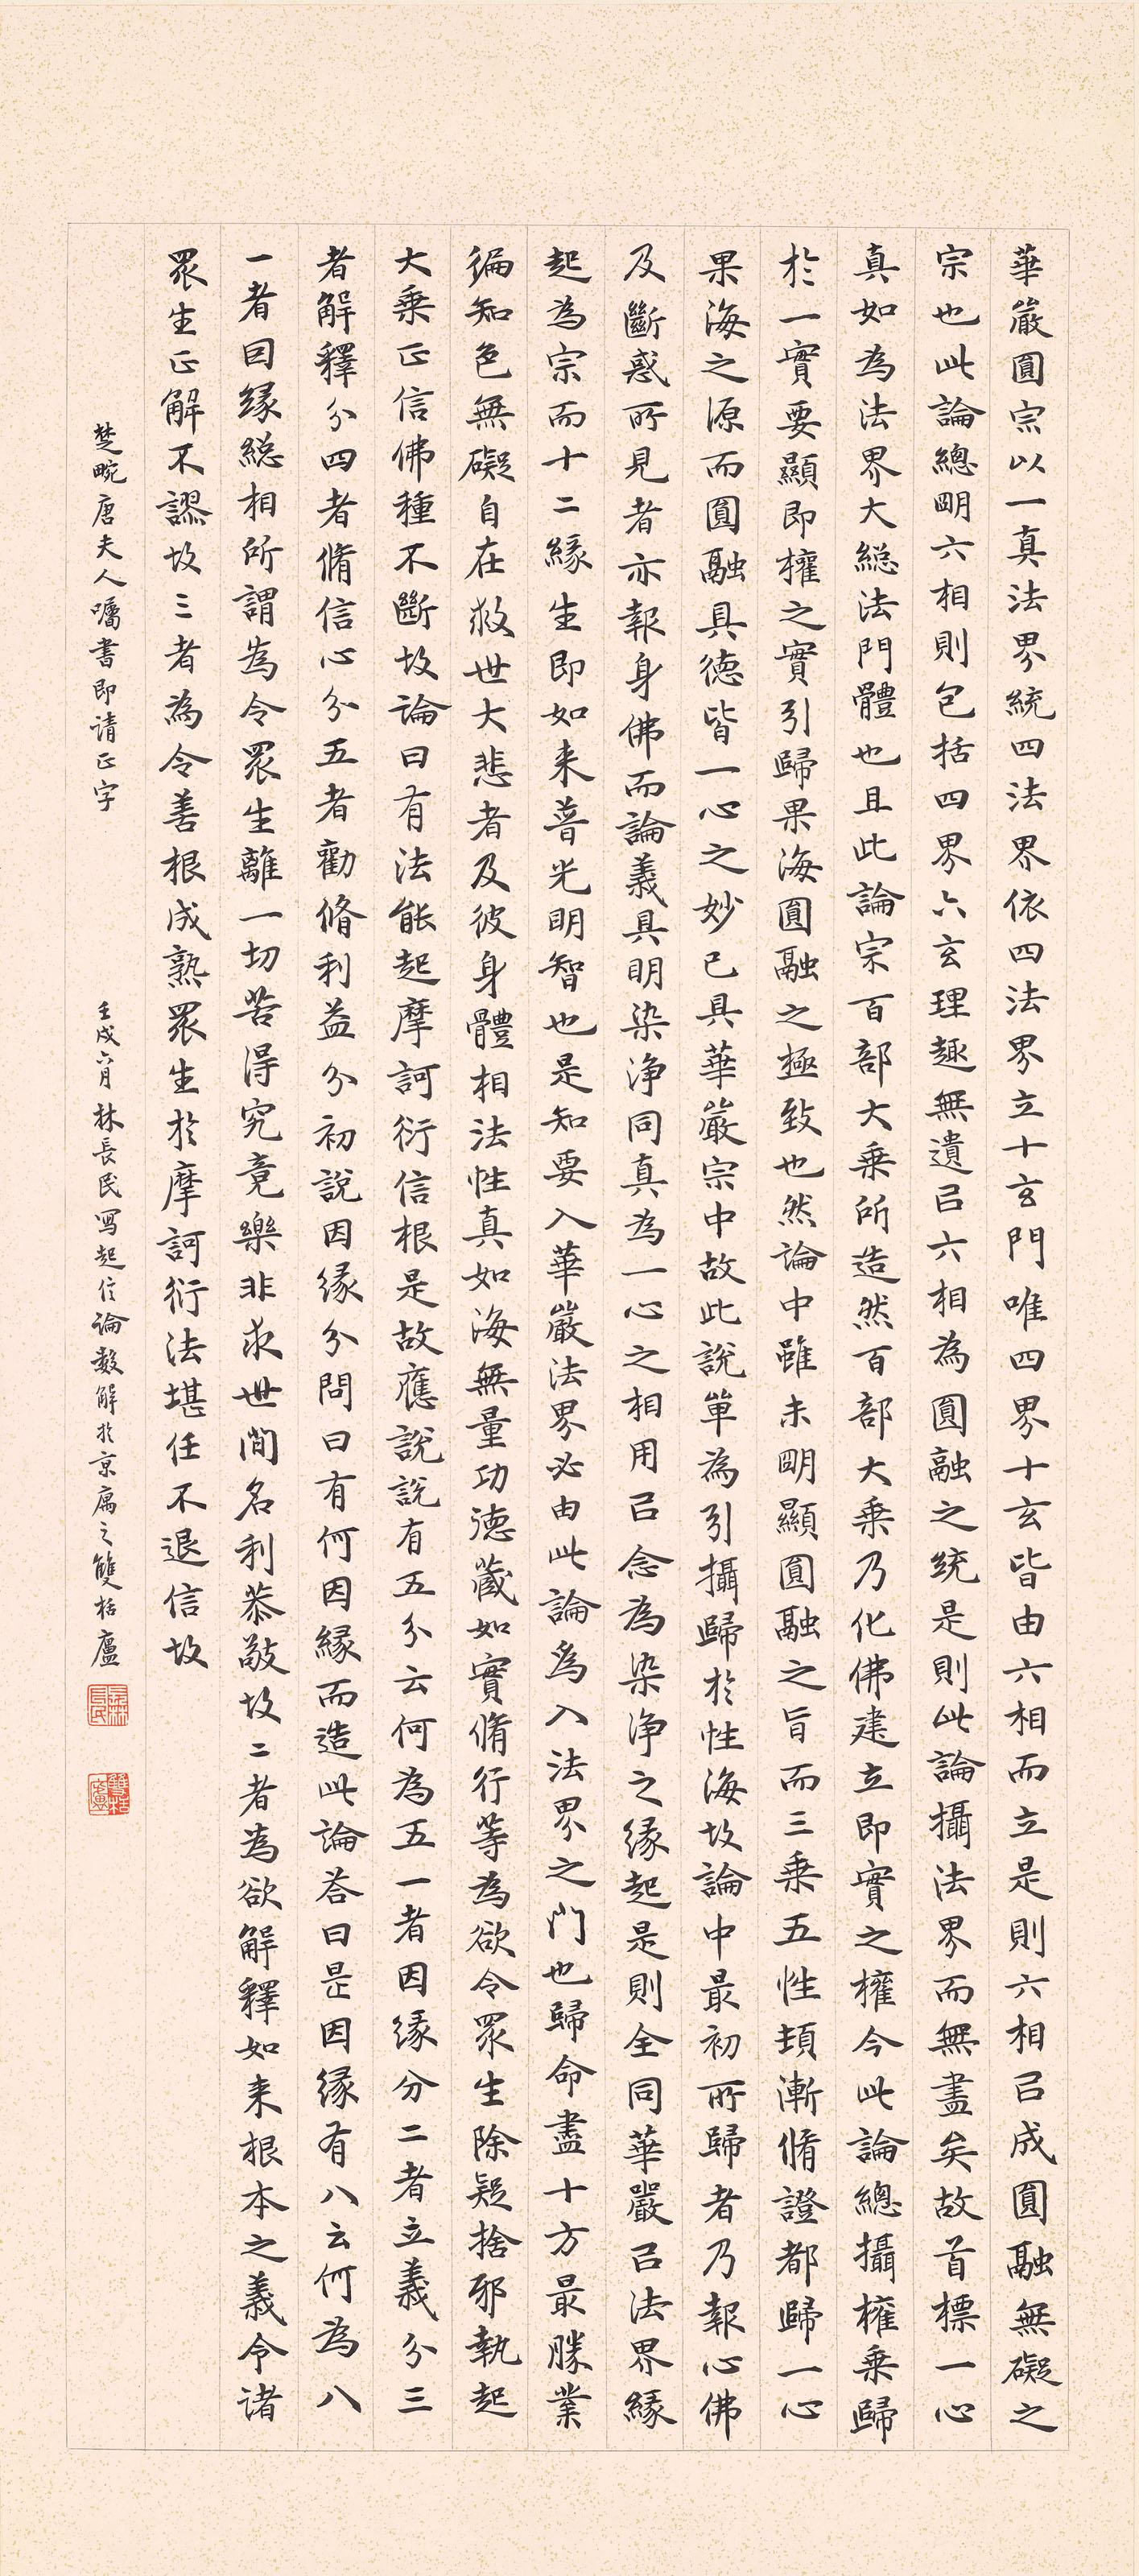 華嚴圓宗以一真法界統四法界依四法界立十玄門唯四界十玄皆由六相而立是則六相㠯成圓融無礙之
宗也此論總明六相則包括四界六玄理趣無遺㠯六相為圓融之統是則此論攝法界而無盡矣故首標一心
真如為法界大総法門體也且此論宗百部大乗所造然百部大乗乃化佛建立即實之權今此論總攝權乗歸
於一實要顯即權之實引歸果海圓融之極致也然論中雖未明顯圓融之旨而三乗五性頓漸脩證都歸一心
果海之源而圓融具德皆一心之妙已具華嚴宗中故此說單為引攝歸於性海故論中最初所歸者乃報心佛
及斷惑所見者亦報身佛而論義具明染淨同真為一心之相用㠯念為染淨之緣起是則全同華嚴㠯法界緣
起為宗而十二緣生即如来普光明智也是知要入華嚴法界必由此論為入法界之門也歸命盡十方最勝業
徧知色無礙自在救世大悲者及彼身體相法性真如海無量功德藏如實脩行等為欲令眾生除疑捨邪執起
大乗正信佛種不斷故論曰有法能起摩訶衍信根是故應說說有五分云何為五一者因緣分二者立義分三
者解釋分四者脩信心分五者勸脩利益分初說因緣分問曰有何因緣而造此論荅曰是因緣有八云何為八
一者因緣総相所謂為令眾生離一切苦得究竟樂非求世間名利恭敬故二者為欲解釋如来根本之義令诸
眾生正解不謬故三者為令善根成熟眾生於摩訶衍法堪任不退信故
楚畹唐夫人囑書即请正字
壬戌六月林長民寫起信論数解於京寓之雙栝廬
林長民
雙栝廬